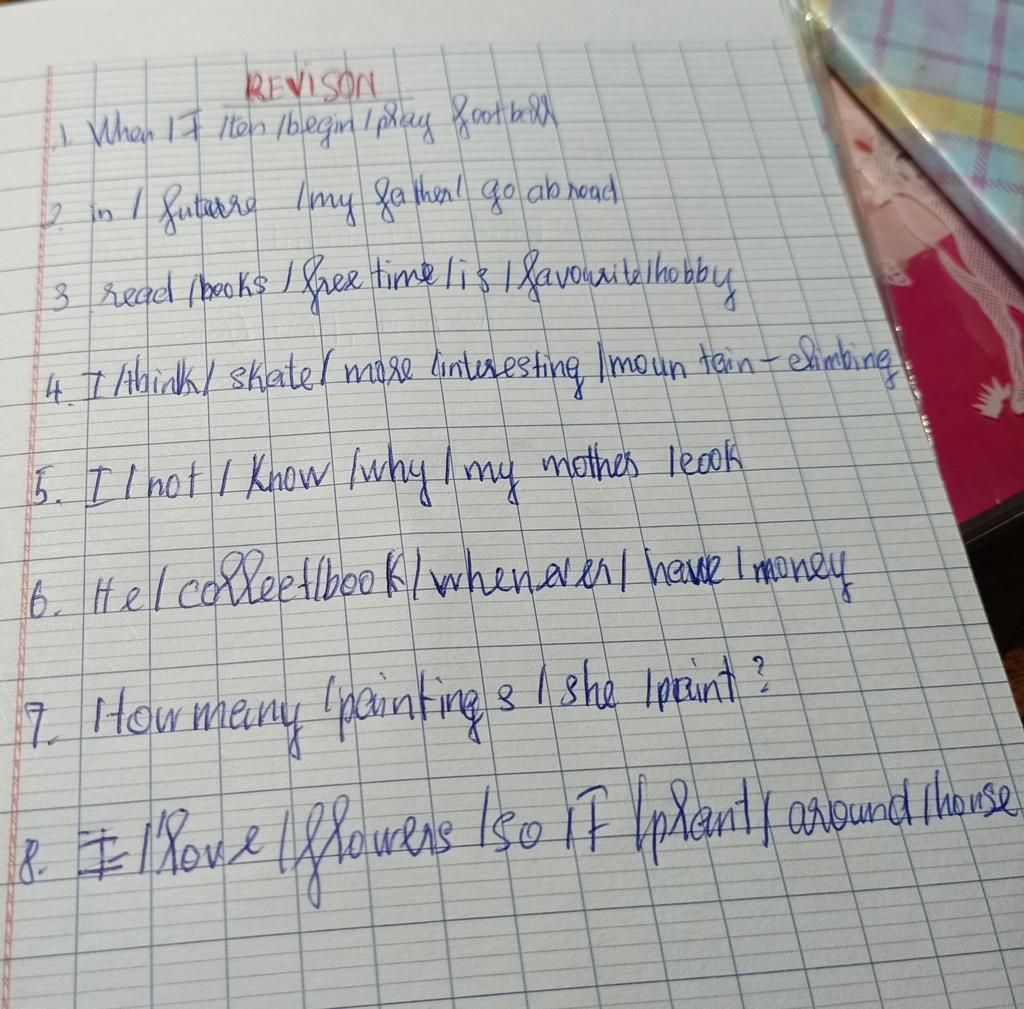 REVISON
1. When / I / ten / begin / play football
2. in / future / my father / go abroad
3 read / books / free time / is / favourite / hobby
4. I / think / skate / more / interesting / mountain - climbing
5. I / not / know / why / my mother / cook
6. He / collect / book / whenever / have / money
7. How many / paintings / she / paint ?
8. I / love / flowers / so / I / plant / around / house